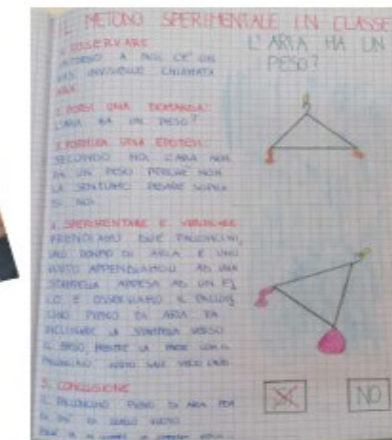 IL METODO SPERIMENTALE IN CLASSE
1. OSSERVARE
INTORNO A NOI C'E' UN
GAS INVISIBILE CHIAMATA
ARIA
2. PORSI UNA DOMANDA:
L'ARIA HA UN PESO?
3. FORMULA UNA IPOTESI:
SECONDO NOI L'ARIA NON
HA UN PESO PERCHE' NON
LA SENTIAMO PESARE SOPRA
DI NOI
4. SPERIMENTARE E VERIFICARE
PRENDIAMO DUE PALLONCINI,
UNO PIENO DI ARIA E UNO
VUOTO APPENDIAMOLI AD UNA
STAMPELLA APPESA AD UN FI
LO E OSSERVIAMO IL PALLON
CINO PIENO DI ARIA FA
INCLINARE LA STAMPELLA VERSO
IL BASSO, MENTRE LA PARTE CON IL
PALLONCINO VUOTO SALE VERSO L'ALTO
5. CONCLUSIONE
IL PALLONCINO PIENO DI ARIA PESA
DI PIU' DI QUELLO VUOTO
L'ARIA HA UN
PESO?
SI
NO